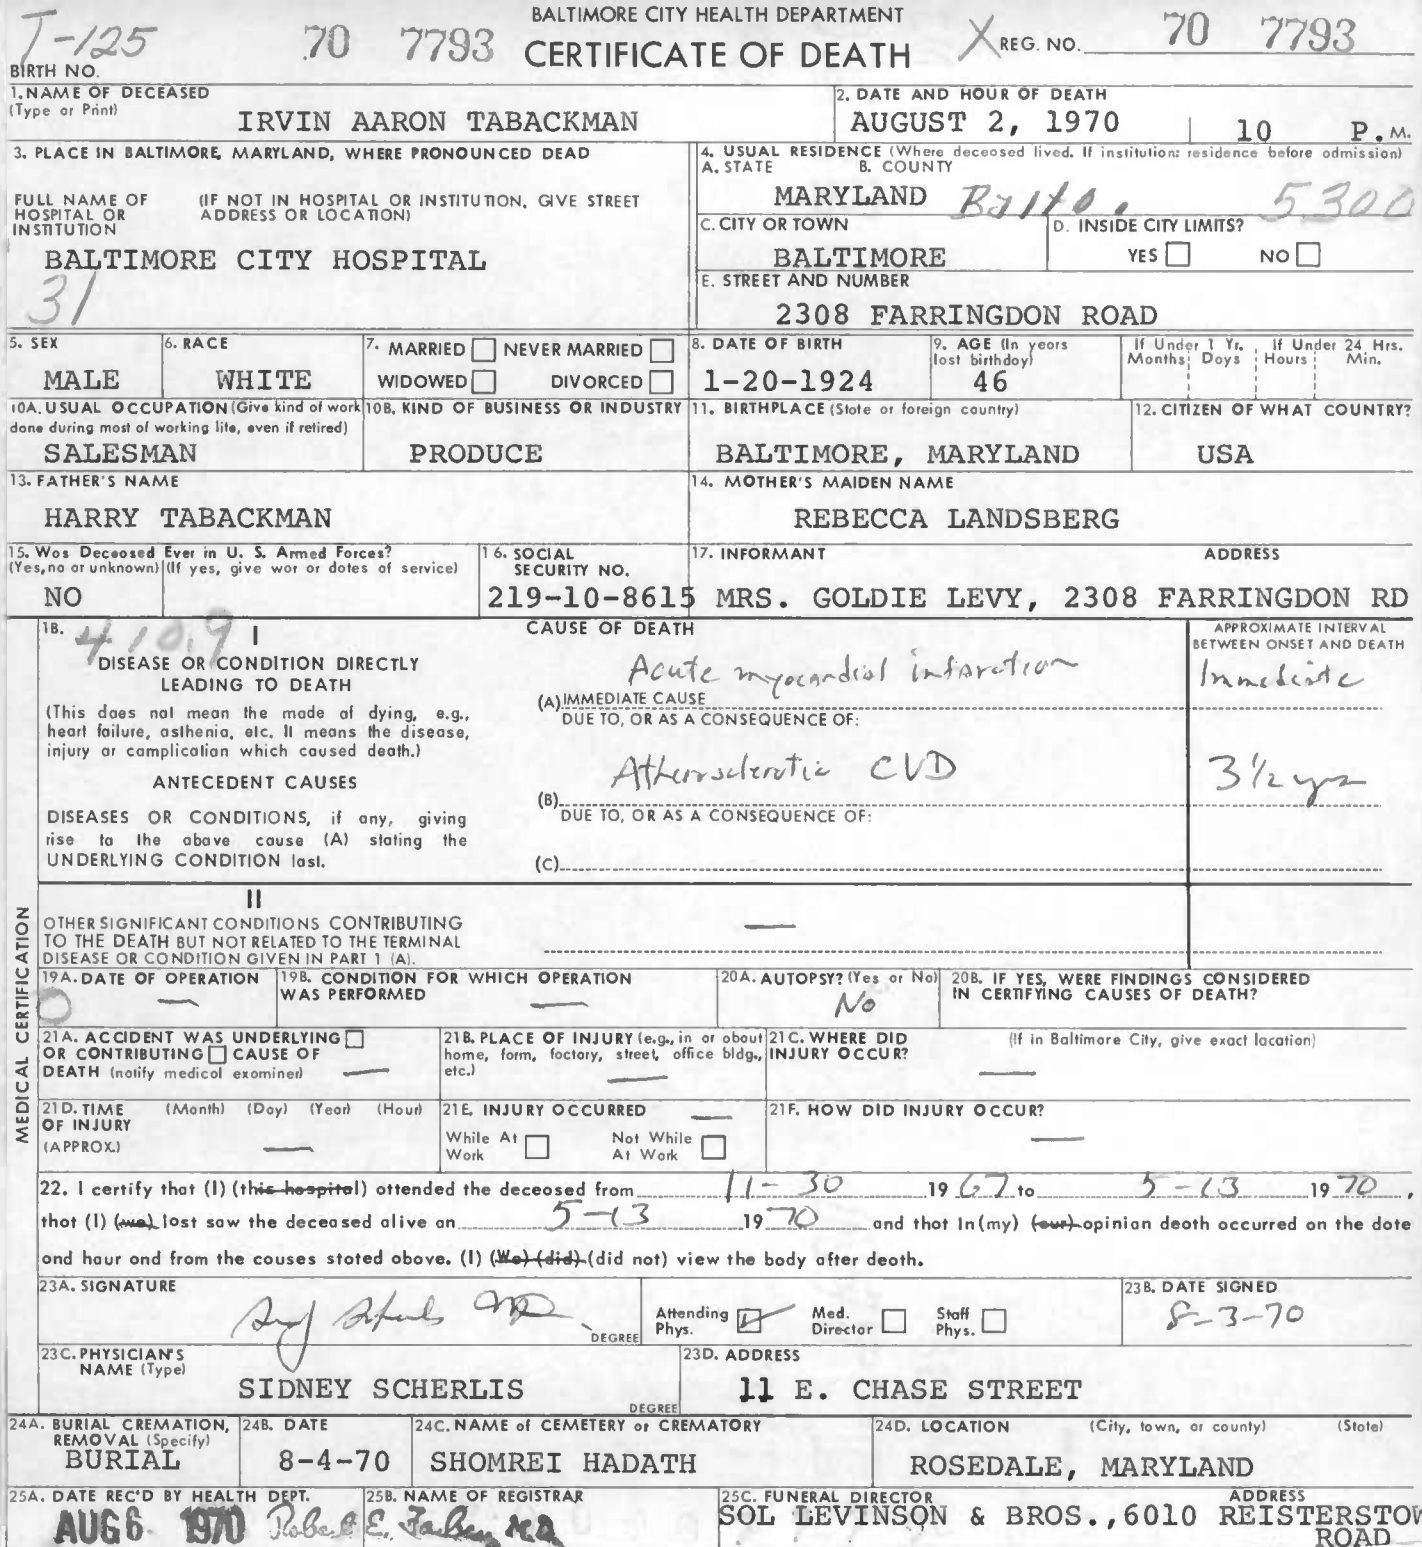 BALTIMORE CITY HEALTH DEPARTMENT
T-125 70 7793 CERTIFICATE OF DEATH X REG. NO. 70 7793
BIRTH NO.
1. NAME OF DECEASED
(Type or Print)
IRVIN AARON TABACKMAN
2. DATE AND HOUR OF DEATH
AUGUST 2, 1970 10 P. M.
3. PLACE IN BALTIMORE, MARYLAND, WHERE PRONOUNCED DEAD
FULL NAME OF HOSPITAL OR INSTITUTION
(IF NOT IN HOSPITAL OR INSTITUTION, GIVE STREET ADDRESS OR LOCATION)
BALTIMORE CITY HOSPITAL
31
4. USUAL RESIDENCE (Where deceased lived. If institution: residence before admission)
A. STATE B. COUNTY
MARYLAND Balto. 5300
C. CITY OR TOWN
BALTIMORE
D. INSIDE CITY LIMITS?
YES NO
E. STREET AND NUMBER
2308 FARRINGDON ROAD
5. SEX
MALE
6. RACE
WHITE
7. MARRIED NEVER MARRIED
WIDOWED DIVORCED
8. DATE OF BIRTH
1-20-1924
9. AGE (In years last birthday)
46
If Under 1 Yr. Months Days
If Under 24 Hrs. Hours Min.
10A. USUAL OCCUPATION (Give kind of work done during most of working life, even if retired)
SALESMAN
10B. KIND OF BUSINESS OR INDUSTRY
PRODUCE
11. BIRTHPLACE (State or foreign country)
BALTIMORE, MARYLAND
12. CITIZEN OF WHAT COUNTRY?
USA
13. FATHER'S NAME
HARRY TABACKMAN
14. MOTHER'S MAIDEN NAME
REBECCA LANDSBERG
15. Was Deceased Ever in U. S. Armed Forces?
(Yes, no or unknown) (If yes, give war or dates of service)
NO
16. SOCIAL SECURITY NO.
219-10-8615
17. INFORMANT ADDRESS
MRS. GOLDIE LEVY, 2308 FARRINGDON RD
18. 410.9 I
CAUSE OF DEATH
APPROXIMATE INTERVAL BETWEEN ONSET AND DEATH
DISEASE OR CONDITION DIRECTLY
LEADING TO DEATH
(This does not mean the mode of dying, e.g.,
heart failure, asthenia, etc. It means the disease,
injury or complication which caused death.)
ANTECEDENT CAUSES
DISEASES OR CONDITIONS, if any, giving
rise to the above cause (A) stating the
UNDERLYING CONDITION last.
Acute myocardial infarction Immediate
(A) IMMEDIATE CAUSE
DUE TO, OR AS A CONSEQUENCE OF:
Atherosclerotic CVD 3 1/2 yrs
(B)
DUE TO, OR AS A CONSEQUENCE OF:
(C)
MEDICAL CERTIFICATION
II
OTHER SIGNIFICANT CONDITIONS CONTRIBUTING
TO THE DEATH BUT NOT RELATED TO THE TERMINAL
DISEASE OR CONDITION GIVEN IN PART 1 (A).
—
19A. DATE OF OPERATION
0 —
19B. CONDITION FOR WHICH OPERATION WAS PERFORMED
—
20A. AUTOPSY? (Yes or No)
No
20B. IF YES, WERE FINDINGS CONSIDERED IN CERTIFYING CAUSES OF DEATH?
21A. ACCIDENT WAS UNDERLYING
OR CONTRIBUTING CAUSE OF
DEATH (notify medical examiner) —
21B. PLACE OF INJURY (e.g., in or about home, farm, factory, street, office bldg., etc.) —
21C. WHERE DID INJURY OCCUR? (If in Baltimore City, give exact location)
—
21D. TIME OF INJURY (APPROX.) (Month) (Day) (Year) (Hour)
—
21E. INJURY OCCURRED —
While At Work Not While At Work
21F. HOW DID INJURY OCCUR?
—
22. I certify that (I) (this hospital) attended the deceased from 11-30 1967 to 5-13 1970,
that (I) (we) last saw the deceased alive on 5-13 1970 and that In (my) (our) opinion death occurred on the date
and hour and from the causes stated above. (I) (We) (did) (did not) view the body after death.
23A. SIGNATURE
MD DEGREE
Attending Phys. Med. Director Staff Phys.
23B. DATE SIGNED
8-3-70
23C. PHYSICIAN'S NAME (Type)
SIDNEY SCHERLIS
DEGREE
23D. ADDRESS
11 E. CHASE STREET
24A. BURIAL CREMATION, REMOVAL (Specify)
BURIAL
24B. DATE
8-4-70
24C. NAME of CEMETERY or CREMATORY
SHOMREI HADATH
24D. LOCATION (City, town, or county) (State)
ROSEDALE, MARYLAND
25A. DATE REC'D BY HEALTH DEPT.
AUG 6 1970
25B. NAME OF REGISTRAR
Robert E. Farber, M.D.
25C. FUNERAL DIRECTOR ADDRESS
SOL LEVINSON & BROS., 6010 REISTERSTOW
ROAD